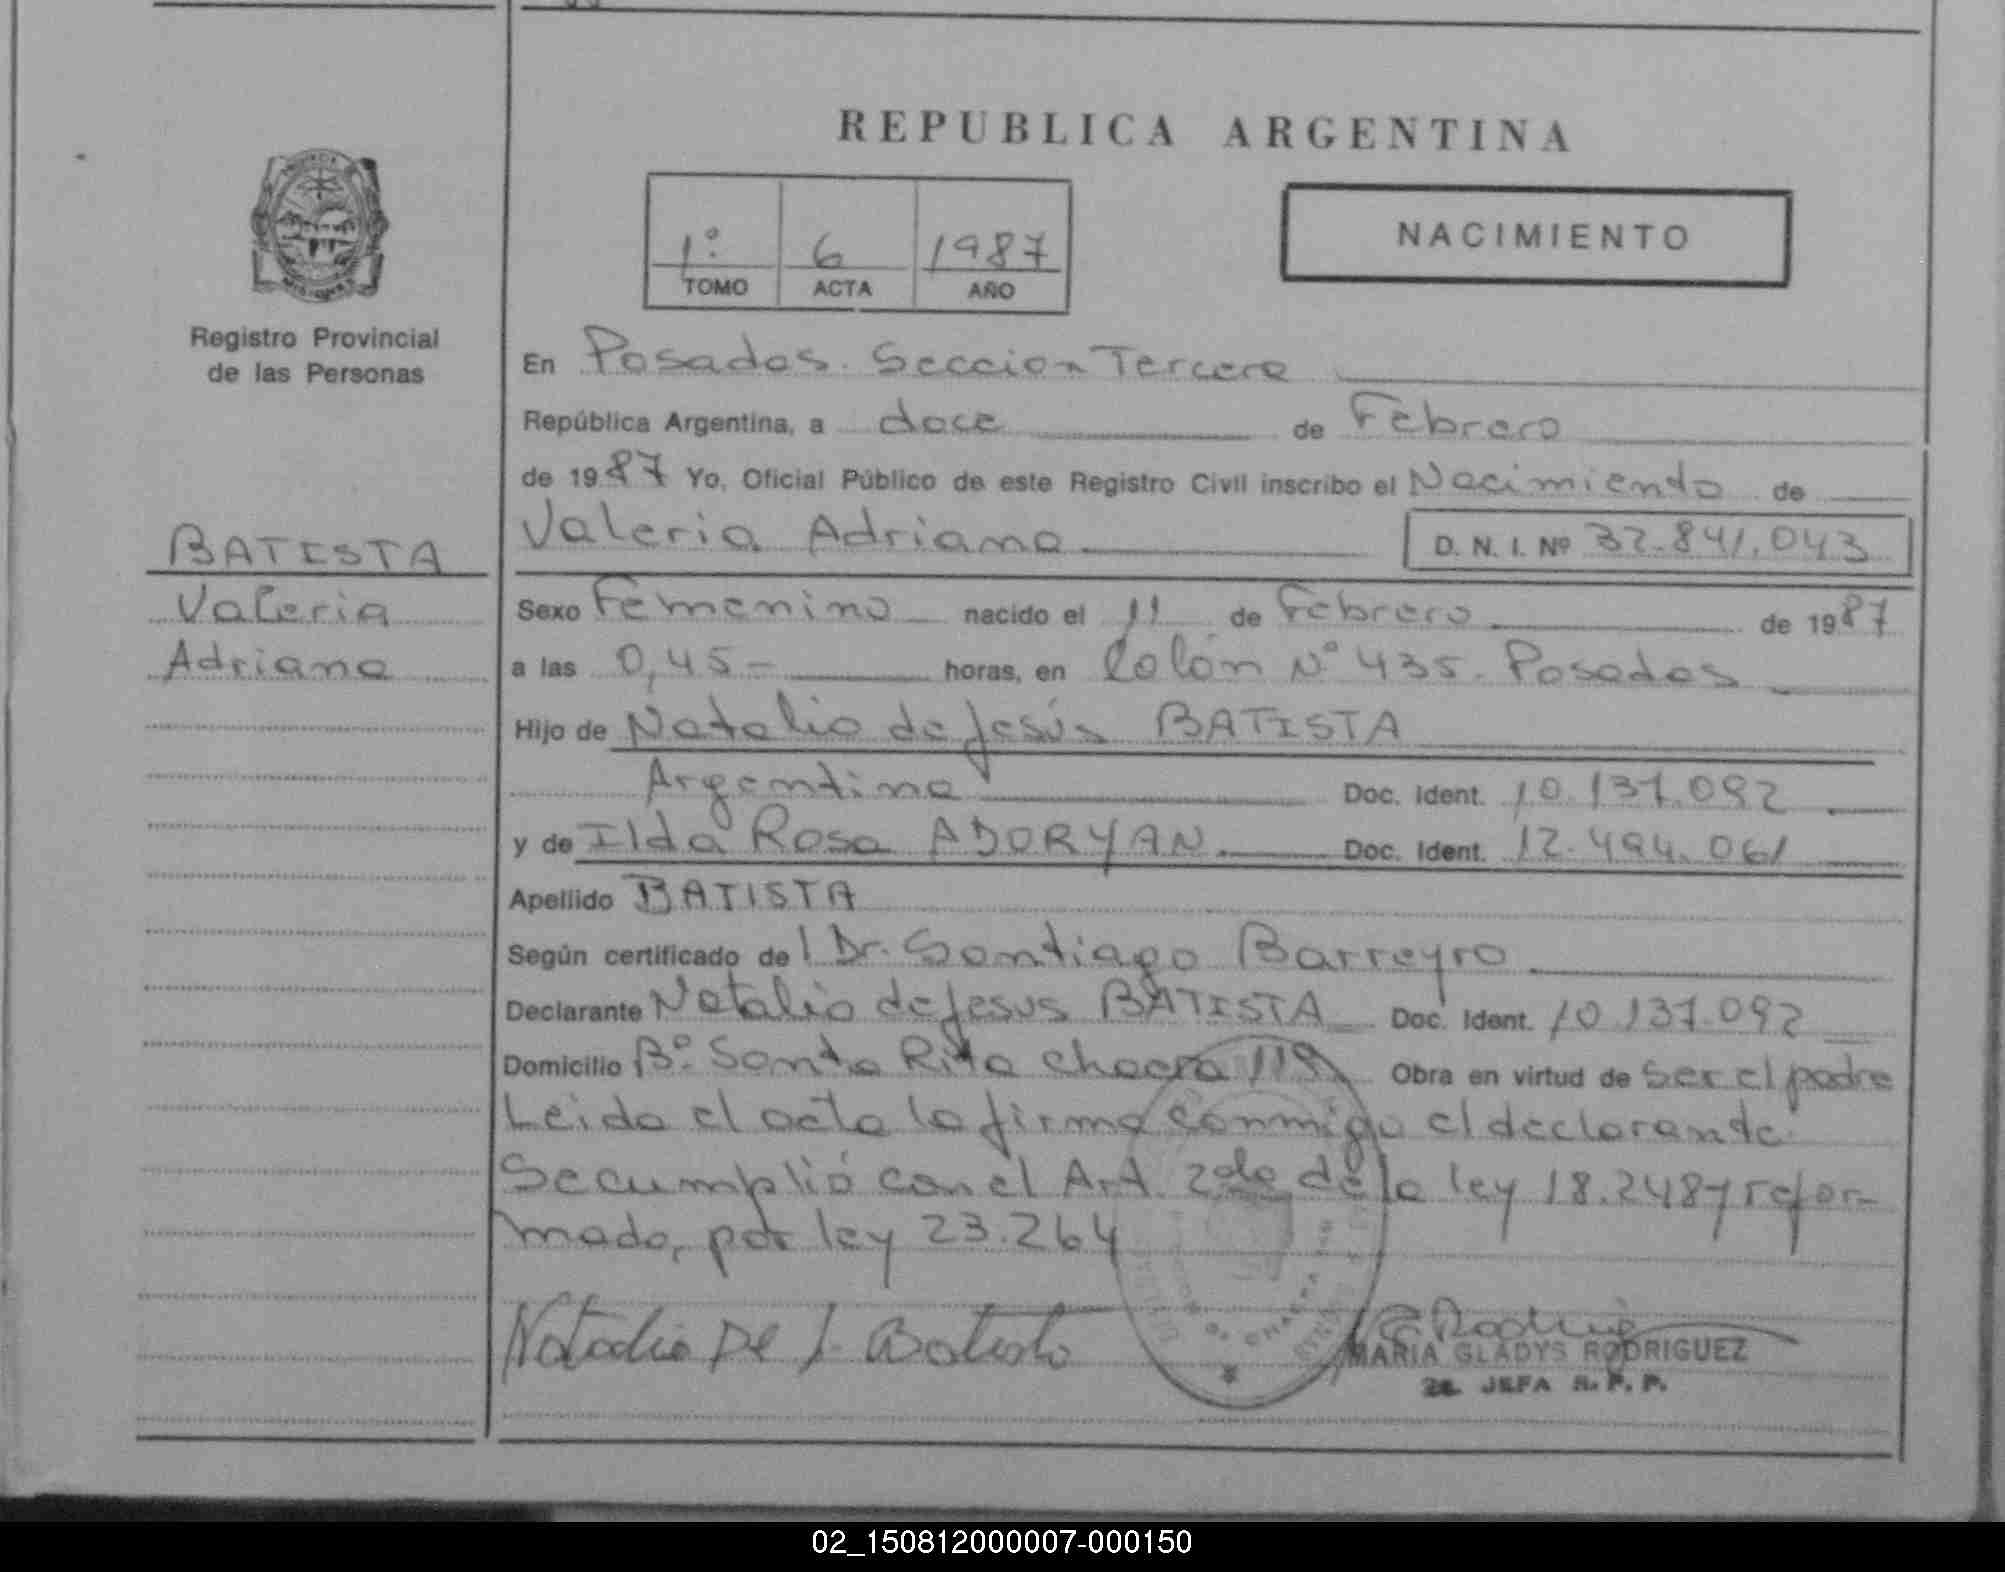 REPUBLICA ARGENTINA
1º 6 1987
TOMO ACTA AÑO
NACIMIENTO
Registro Provincial
de las Personas
BATISTA
Valeria
Adriana
En Posadas. Seccion Tercera
República Argentina, a doce de Febrero
de 1987 Yo, Oficial Público de este Registro Civil inscribo el Nacimiento de
Valeria Adriana D. N. I. Nº 32.841.043
Sexo Femenino nacido el 11 de Febrero de 1987
a las 0,45- horas, en Colón Nº 435. Posadas
Hijo de Natalio de Jesús BATISTA
Argentina Doc. Ident. 10.137.092
y de Ilda Rosa ADORYAN Doc. Ident. 12.494.061
Apellido BATISTA
Según certificado del Dr. Santiago Barreyro
Declarante Natalio de Jesus BATISTA Doc. Ident. 10.137.092
Domicilio Bº Santa Rita chacra 119 Obra en virtud de ser el padre
Leida el acta la firma conmigo el declarante.
Se cumplió con el Art. 2do de la ley 18.248 y refor-
mado, por ley 23.264
Natalio De J. Batista
MARIA GLADYS RODRIGUEZ
JEFA R. P. P.
02_150812000007-000150